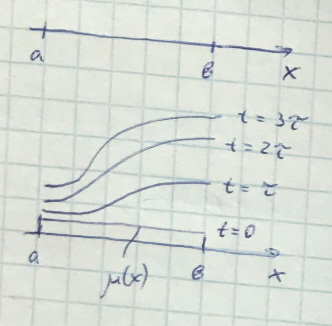 a в x
t = 3τ
t = 2τ
t = τ
t = 0
a в x
μ(x)